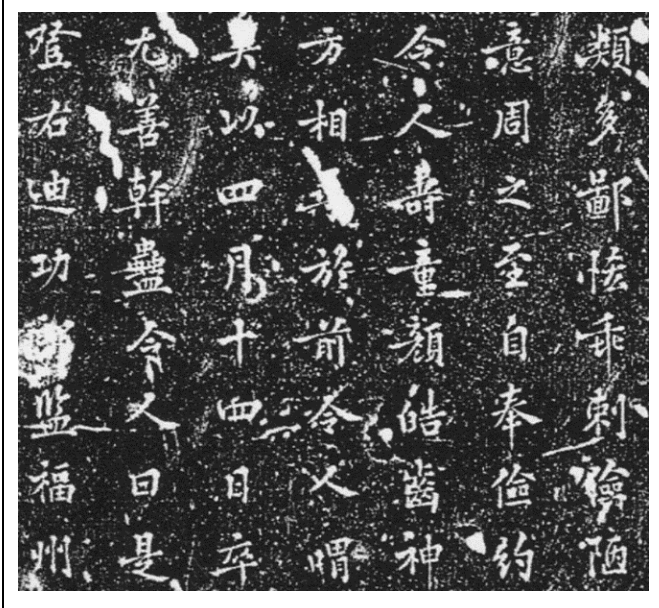 頗多鄙恡乖剌險陋
意周之至自奉儉約
令人壽童顏皓齒神
方相於前令人
矣以四月十四日卒
尤善幹蠱令人曰是
陞右迪功郎監福州